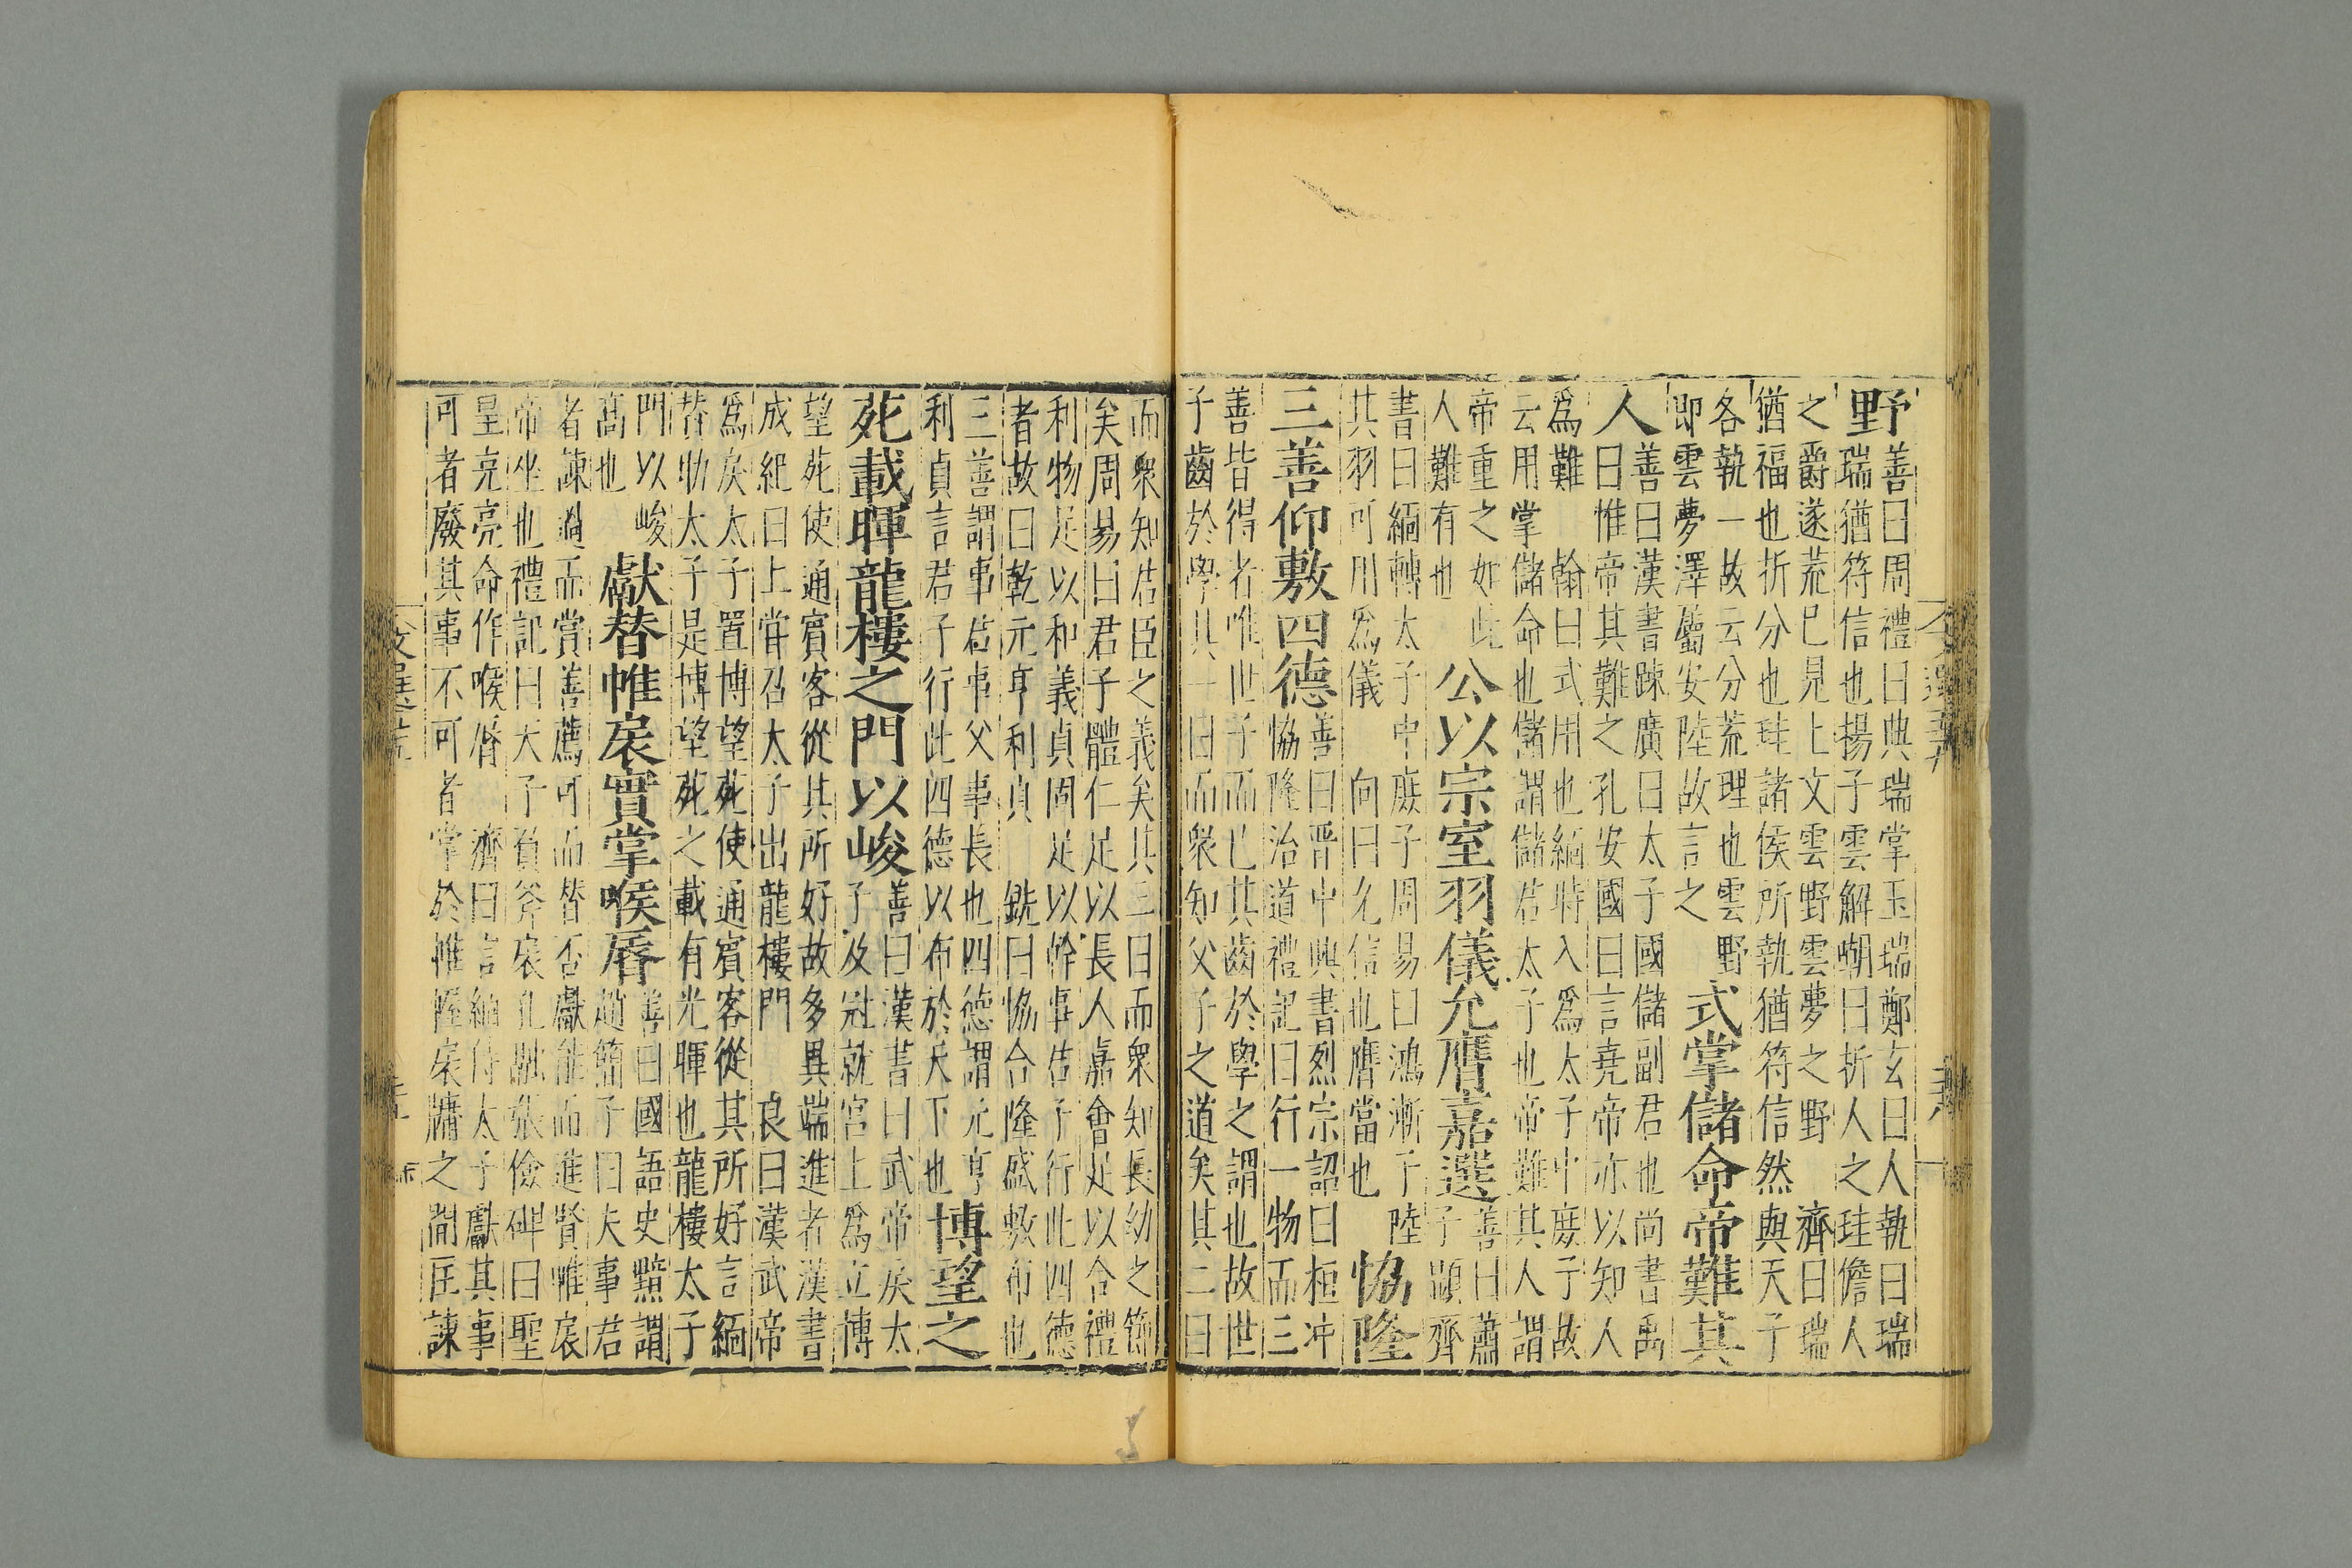 野善曰周禮曰典瑞掌玉瑞鄭玄曰人執曰瑞
瑞猶符信也揚子雲解嘲曰折人之珪儋人
之爵遂荒已見上文雲野雲夢之野 濟曰瑞
猶福也折分也珪諸侯所執猶符信然與天子
各執一故云分荒理也雲野
即雲夢澤屬安陸故言之 式掌儲命帝難其
人善曰漢書踈廣曰太子國儲副君也尚書禹
曰惟帝其難之孔安國曰言堯帝亦以知人
爲難 翰曰式用也緬特入爲太子中庶子故
云用掌儲命也儲謂儲君太子也帝難其人謂
帝重之如此
人難有也 公以宗室羽儀允膺嘉選善曰蕭
子顯齊
書曰緬轉太子中庶子周易曰鴻漸于陸
其羽可用爲儀 向曰允信也膺當也 恊隆
三善仰敷四德善曰晉中興書烈宗詔曰桓冲
恊隆治道禮記曰行一物而三
善皆得者唯世子而已其齒於學之謂也故世
子齒於學其一曰而衆知父子之道矣其二曰
而衆知君臣之義矣其三曰而衆知長幼之節
矣周易曰君子體仁足以長人嘉會足以合禮
利物足以和義貞固足以幹事君子行此四德
者故曰乾元亨利貞 銑曰恊合隆盛敷布也
三善謂事君事父事長也四德謂元亨
利貞言君子行此四德以布於天下也 博望之
苑載暉龍樓之門以峻善曰漢書曰武帝戾太
子及冠就宮上爲立博
望苑使通賓客從其所好故多異端進者漢書
成紀曰上甞召太子出龍樓門 良曰漢武帝
爲戾太子置博望苑使通賓客從其所好言緬
替助太子是博望苑之載有光暉也龍樓太子
門以峻
高也 獻替帷扆實掌喉脣善曰國語史黯謂
趙簡子曰夫事君
者諫過而賞善薦可而替否獻能而進賢帷扆
帝坐也禮記曰天子負斧扆孔融張儉碑曰聖
皇克亮命作喉脣 濟曰言緬侍太子獻其事
可者廢其事不可者掌於帷幄扆牖之間匡諫